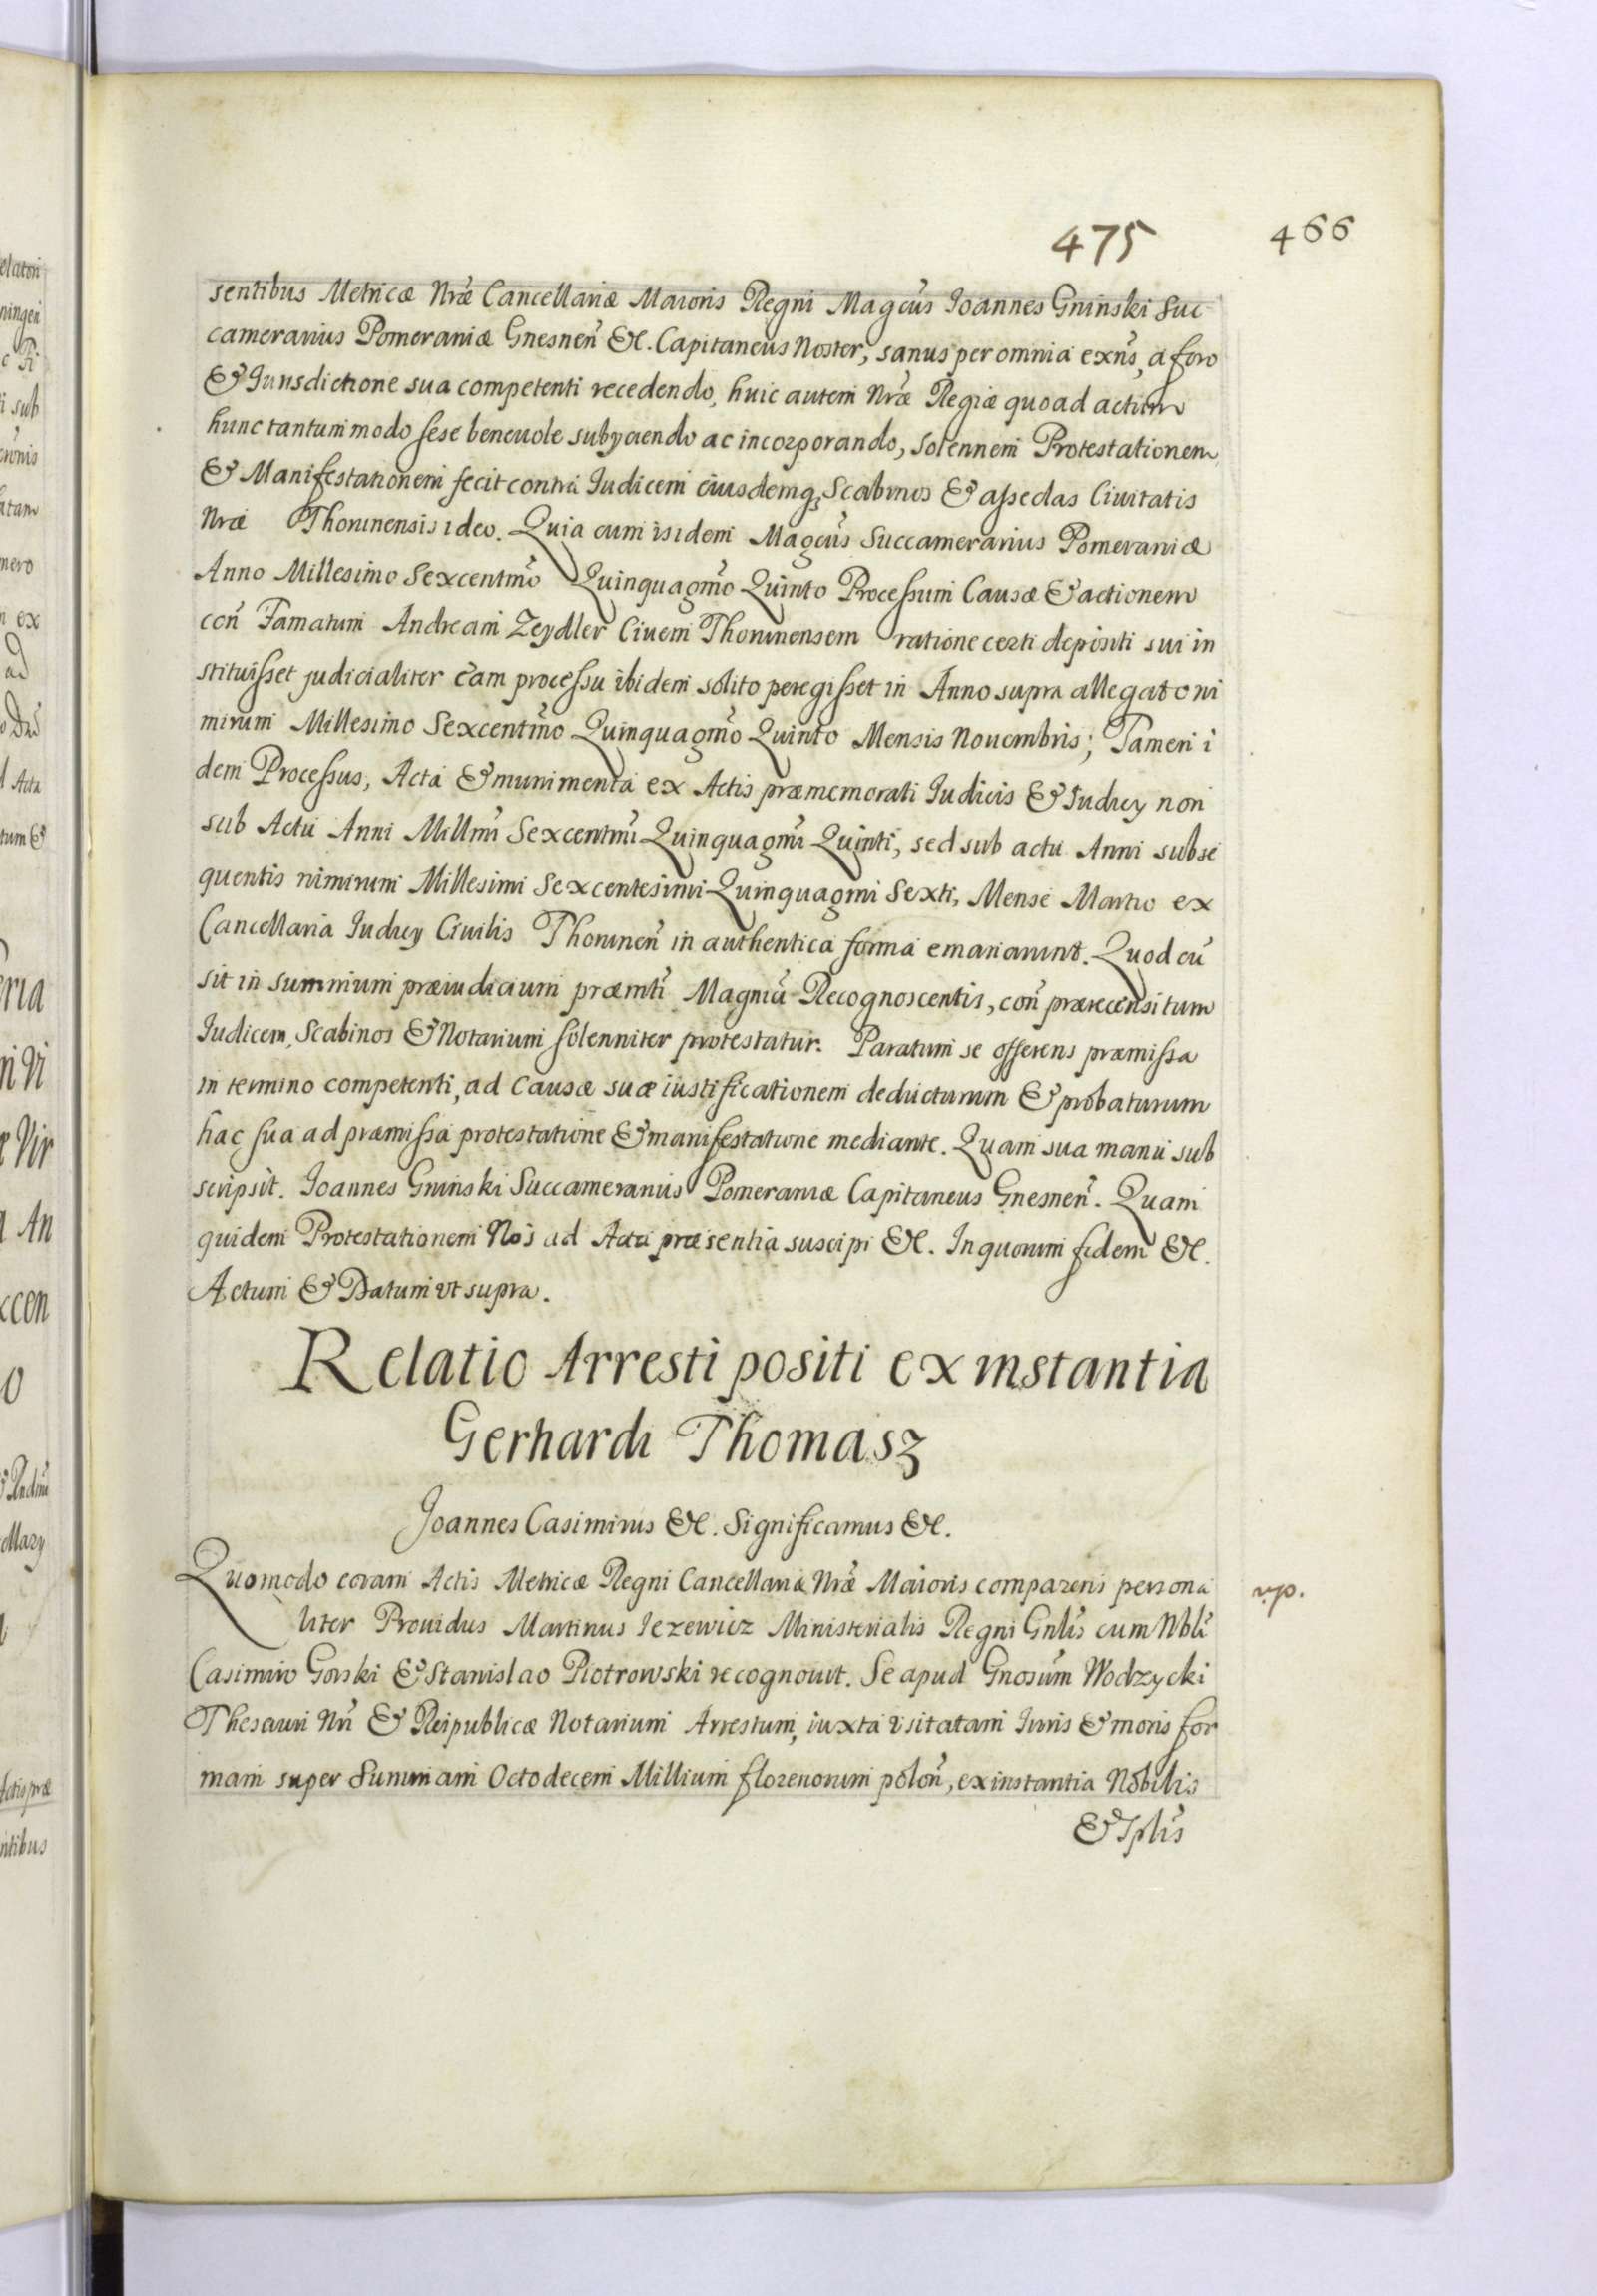 475 466
sentibus Metricæ Nræ Cancellariæ Maioris Regni Magcus Joannes Gninski Suc
camerarius Pomeraniæ Gnesnen &c. Capitaneus Noster, sanus per omnia exns, a foro
& Iurisdictione sua competenti recedendo, huic autem Nræ Regiæ quoad actum
hunc tantummodo sese beneuole subyciendo ac incorporando, Solennem Protestationem
& Manifestationem fecit contra Iudicem eiusdemq; Scabinos & assedas Ciuitatis
Nræ Thorunensis ideo. Quia cum isidem Magcus Succamerarius Pomeraniæ
Anno Millesimo Sexcentmo Quinquagmo Quinto Processum Causæ & actionem
con Famatum Andream Zeydler Ciuem Thorunensem ratione certi depositi sui in
stituisset judicialiter eam processu ibidem solito peregisset in Anno supra allegato ni
mirum Millesimo Sexcentmo Quinquagmo Quinto Mensis Nouembris; Tamen i
dem Processus, Acta & munimenta ex Actis præmemorati Iudicis & Iudicy non
sub Actu Anni Millmi Sexcentmi Quinquagmi Quinti, sed sub actu Anni subse
quentis nimirum Millesimi Sexcentesimi Quinquagmi Sexti, Mense Martio ex
Cancellaria Iudicy Ciuilis Thorunen in authentica forma emanarunt. Quod cu
sit in summum præiudicium præmti Magniu Recognoscentis, con prærecensitum
Iudicem, Scabinos & Notarium solenniter protestatur. Paratum se offerens præmissa
in termino competenti, ad Causæ suæ iustificationem deducturum & probaturum
hac sua ad præmissa protestatione & manifestatione mediante. Quam sua manu sub
scripsit. Joannes Gninski Succamerarius Pomeraniæ Capitaneus Gnesnen. Quam
quidem Protestationem Nos ad Acta præsentia suscipi &c. In quorum fidem &c.
Actum & Datum ut supra.
Relatio Arresti positi ex instantia
Gerhardi Thomasz
Joannes Casimirus &c. Significamus &c.
Quomodo coram Actis Metricæ Regni Cancellariæ Nræ Maioris comparens persona
liter Prouidus Martinus Jezewicz Ministerialis Regni Gnlis cum Nbli
Casimiro Gorski & Stanislao Piotrowski recognouit. Se apud Gnosum Wodzycki
Thesauri Nri & Reipublicæ Notarium Arrestum, iuxta usitatam Iuris & moris for
mam super Summam Octodecem Millium florenorum polon, ex instantia Nobilis
& Iplis